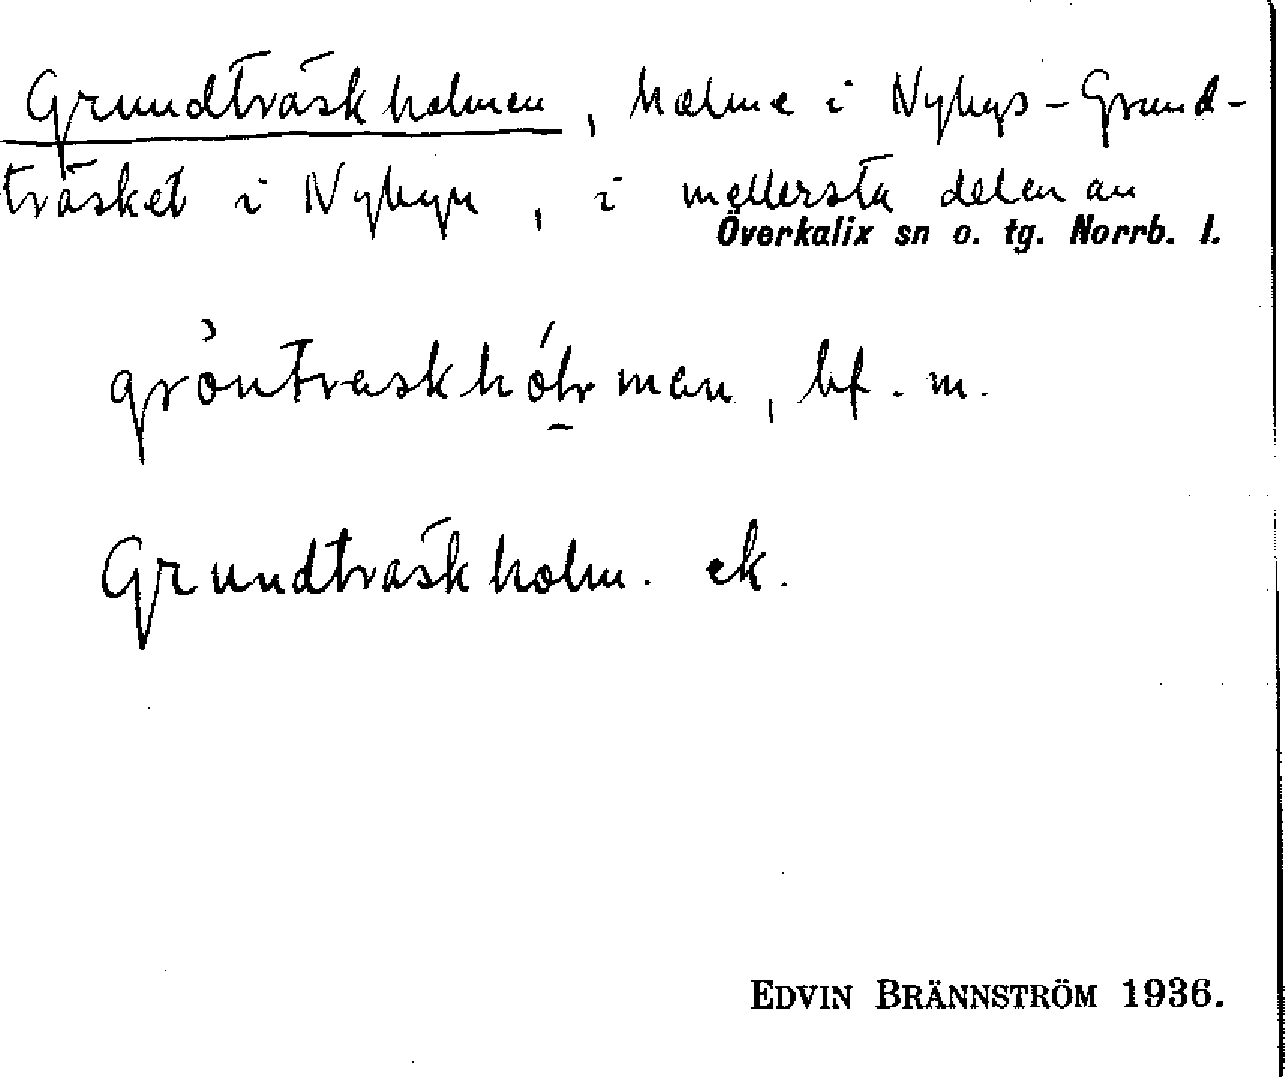 Grundträskholmen, holme i Nybyns-Grund-
träsket i Nybyn, i mellersta delen av
Överkalix sn o. tg. Norrb. l.
bf. m.
Grundträskholm. ek.
EDVIN BRÄNNSTRÖM 1936.